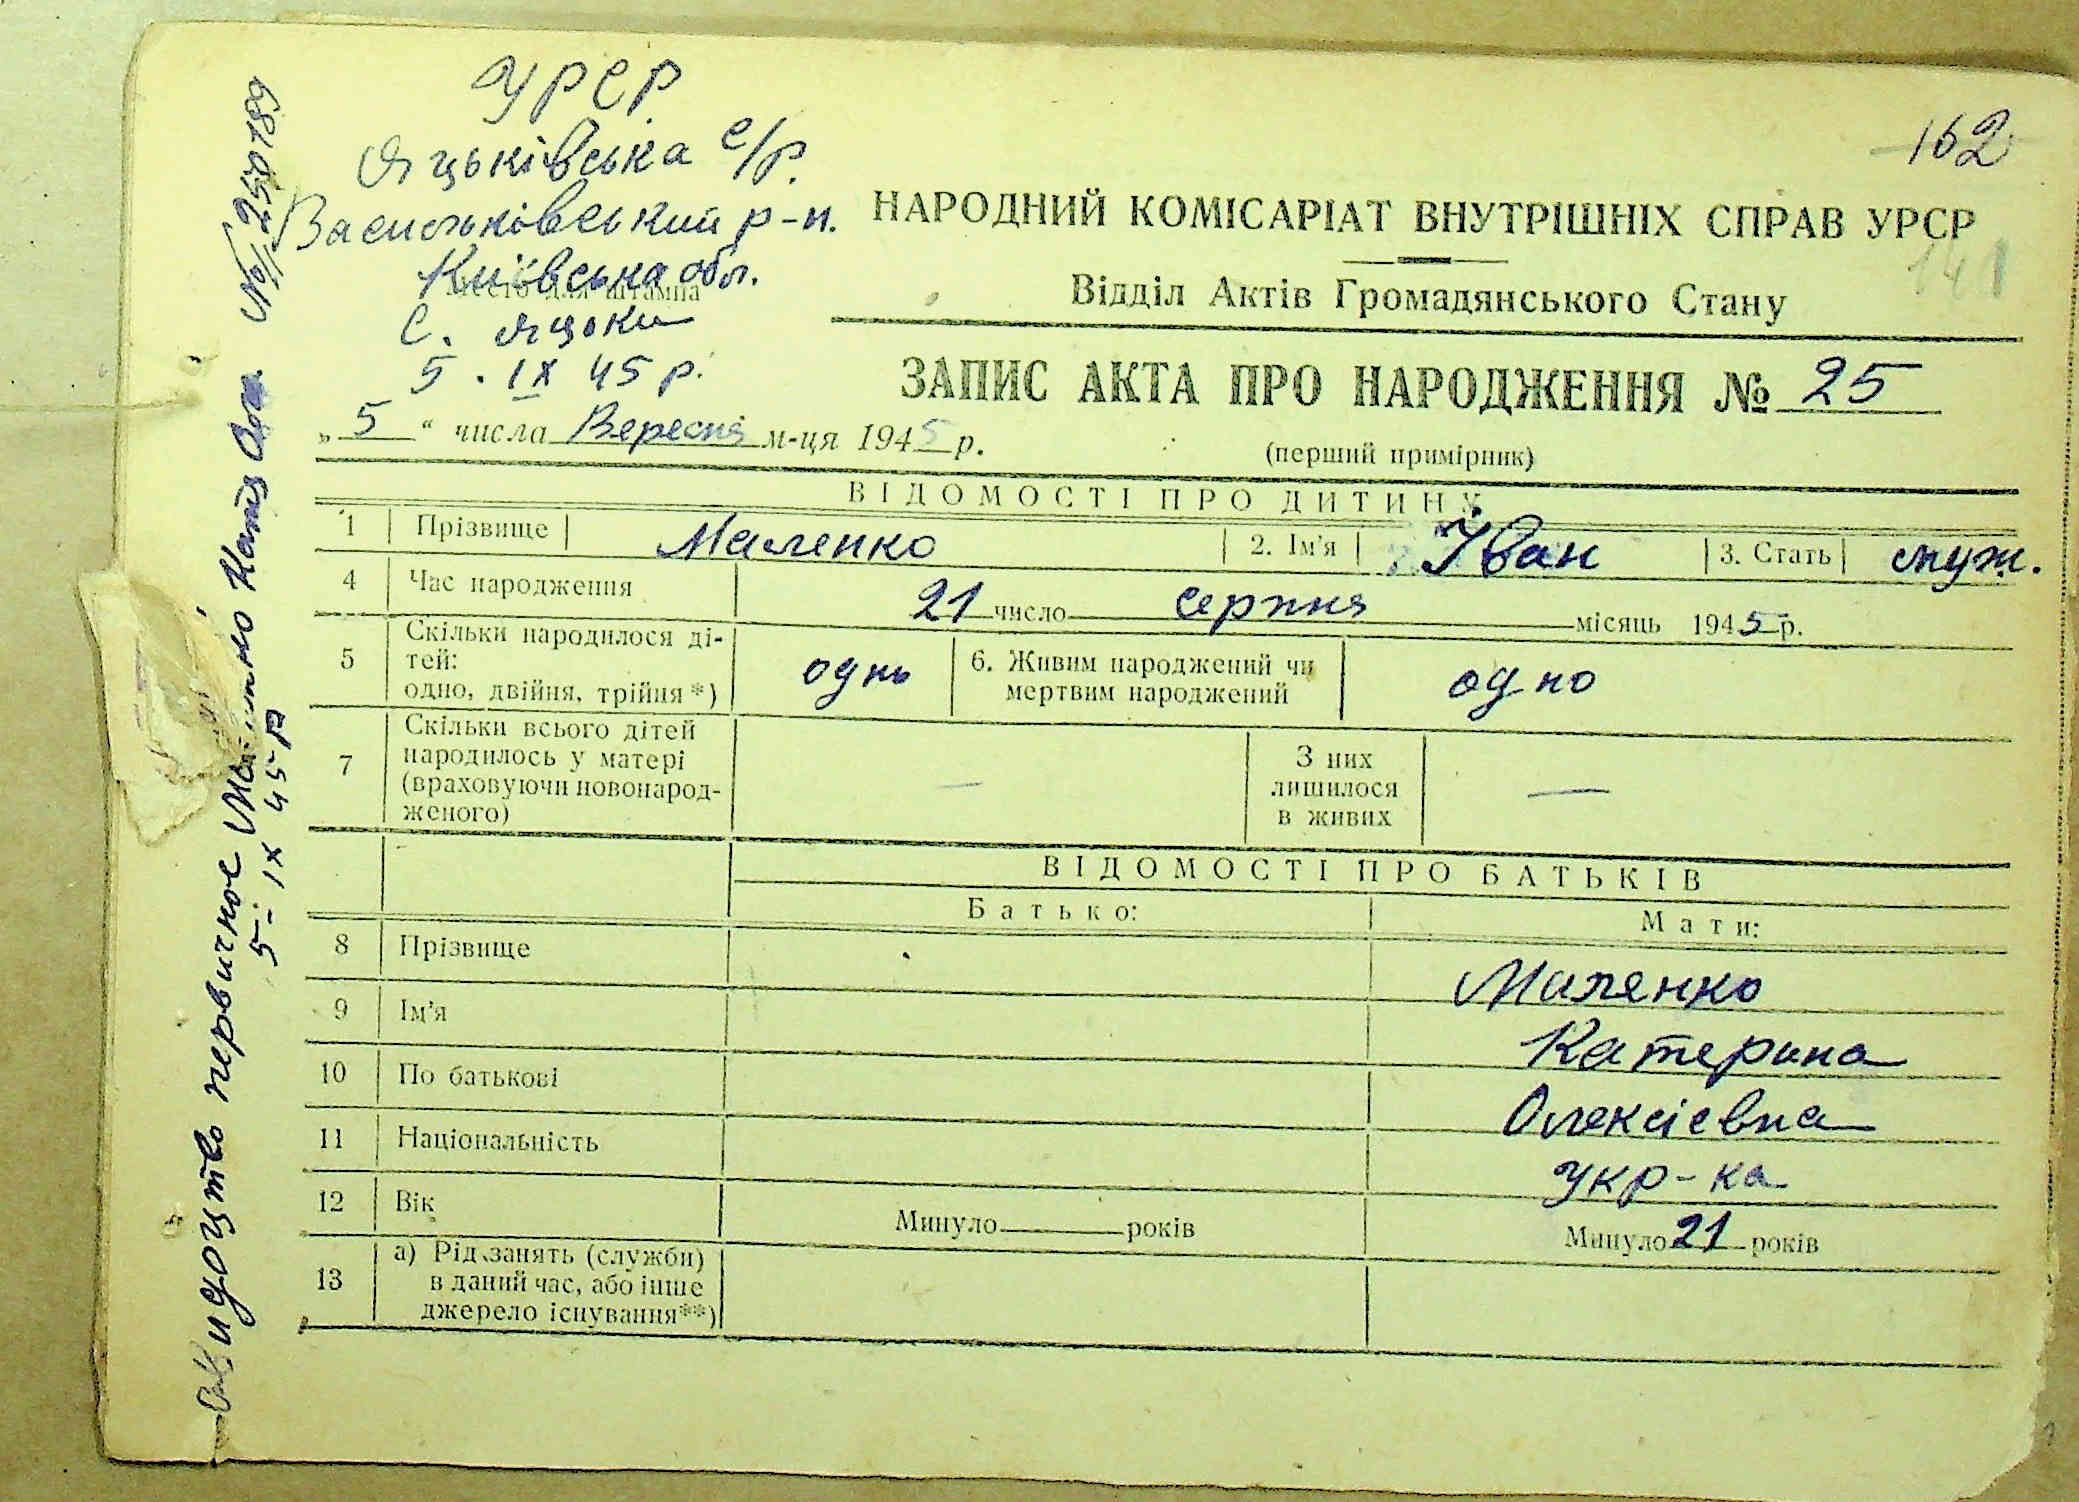 УРСР
Яцьківська с/р.
Васильківський р-н.
Київська обл.
Місто для штампа
с. Яцьки
5. IX 45 р.
162
141
НАРОДНИЙ КОМІСАРІАТ ВНУТРІШНІХ СПРАВ УРСР
Відділ Актів Громадянського Стану
ЗАПИС АКТА ПРО НАРОДЖЕННЯ № 25
„5“ числа Вересня м-ця 1945 р.
(перший примірник)
ВІДОМОСТІ ПРО ДИТИНУ
1 Прізвище Маленко 2. Ім'я Іван 3. Стать муж.
4 Час народження 21 число серпня місяць 1945 р.
5 Скільки народилося ді-
тей:
одно, двійня, трійня*) однь 6. Живим народжений чи
мертвим народжений одно
7 Скільки всього дітей
народилось у матері
(враховуючи новонарод-
женого) — З них
лишилося
в живих —
ВІДОМОСТІ ПРО БАТЬКІВ
Батько: Мати:
8 Прізвище Маленко
9 Ім'я Катерина
10 По батькові Олексієвна
11 Національність укр-ка
12 Вік Минуло років Минуло 21 років
13 а) Рід занять (служби)
в даний час, або інше
джерело існування**)
первичное Катя Ол. № 250189
5-IX 45 р